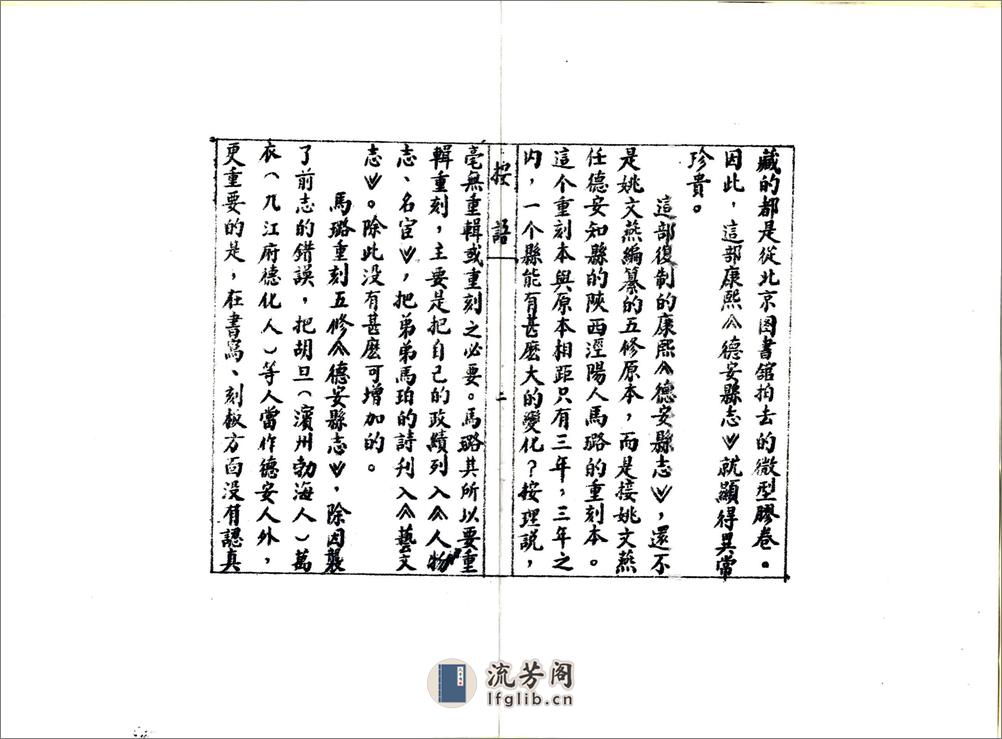 藏的都是從北京图書舘拍去的微型膠卷。
因此，這部康熙《德安縣志》就顯得異常
珍貴。
這部復制的康熙《德安縣志》，還不
是姚文燕編纂的五修原本，而是接姚文燕
任德安知縣的陝西涇陽人馬璐的重刻本。
這个重刻本與原本相距只有三年，三年之
内，一个縣能有甚麽大的變化？按理説，
按語
二
毫無重輯或重刻之必要。馬璐其所以要重
輯重刻，主要是把自己的政績列入《人物
志、名宦》，把弟弟馬珀的詩刊入《藝文
志》。除此没有甚麽可增加的。
馬璐重刻五修《德安縣志》，除因襲
了前志的错誤，把胡旦（濱州勃海人）萬
衣（九江府德化人）等人當作德安人外，
更重要的是，在書寫、刻板方面没有認真
流芳阁
lfglib.cn